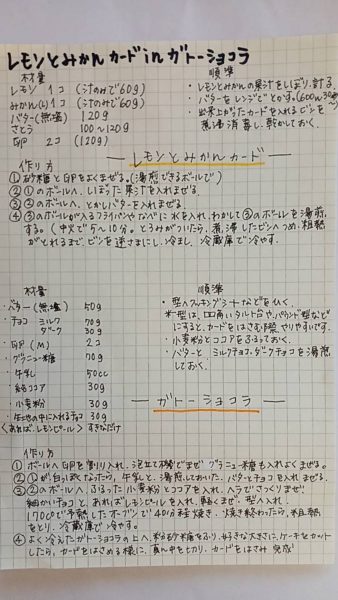 レモンとみかんカードinガトーショコラ
材量
レモン 1コ (汁のみで60g)
みかん(L) 1コ (汁のみで60g)
バター(無塩) 120g
さとう 100〜120g
卵 2コ (120g)
順準
・レモンとみかんの果汁をしぼり、計る。
・バターをレンジでとかす。(600w 30秒〜)
・出来上がったカードを入れるビンを
煮沸消毒し、乾かしておく。
レモンとみかんカード
作り方
①砂糖と卵をよくまぜる。(湯煎できるボールで)
②①のボールへ、しぼった果汁を入れまぜる。
③②のボールへ、とかしバターを入れまぜる。
④③のボールが入るフライパンやナベに水を入れ、わかして③のボールを湯煎
する。(中火で5〜10分。とろみがついたら、煮沸したビンへつめ、粗熱
がとれるまで、ビンを逆さまにし、冷まし、冷蔵庫で冷やす。
材量
・バター(無塩) 50g
・チョコ ミルク 70g
ダーク 30g
・卵(M) 2コ
・グラニュー糖 70g
・牛乳 50cc
・純ココア 30g
・小麦粉 30g
・生地の中に入れるチョコ 30g
〈あればレモンピール〉 すきなだけ
順準
・型へクッキングシートなどをしく。
*型は、四角いタルト台や、パウンド型など
にすると、カードをはさむ際、やりやすいです。
・小麦粉とココアをふるっておく。
・バターと ミルクチョコ、ダークチョコを湯煎
しておく。
ガトーショコラ
作り方
①ボールへ卵を割り入れ、泡立て器でまぜ グラニュー糖も入れよくまぜる。
②①が白っぽくなったら、牛乳と、湯煎しておいた、バターとチョコを入れまぜる。
③②のボールへ、ふるった小麦粉とココアを入れ、ヘラでさっくりまぜ
細かいチョコと、あればレモンピールを入れ、軽くまぜ、型へ入れ、
170℃で予熱したオーブンで40分程焼き、焼き終わったら、粗熱
をとり、冷蔵庫で冷やす。
④よく冷えたガトーショコラの上へ、粉砂糖をふり、好きな大きさに、ケーキをカット
したら、カードをはさめる様に、真ん中を切り、カードをはさみ 完成!